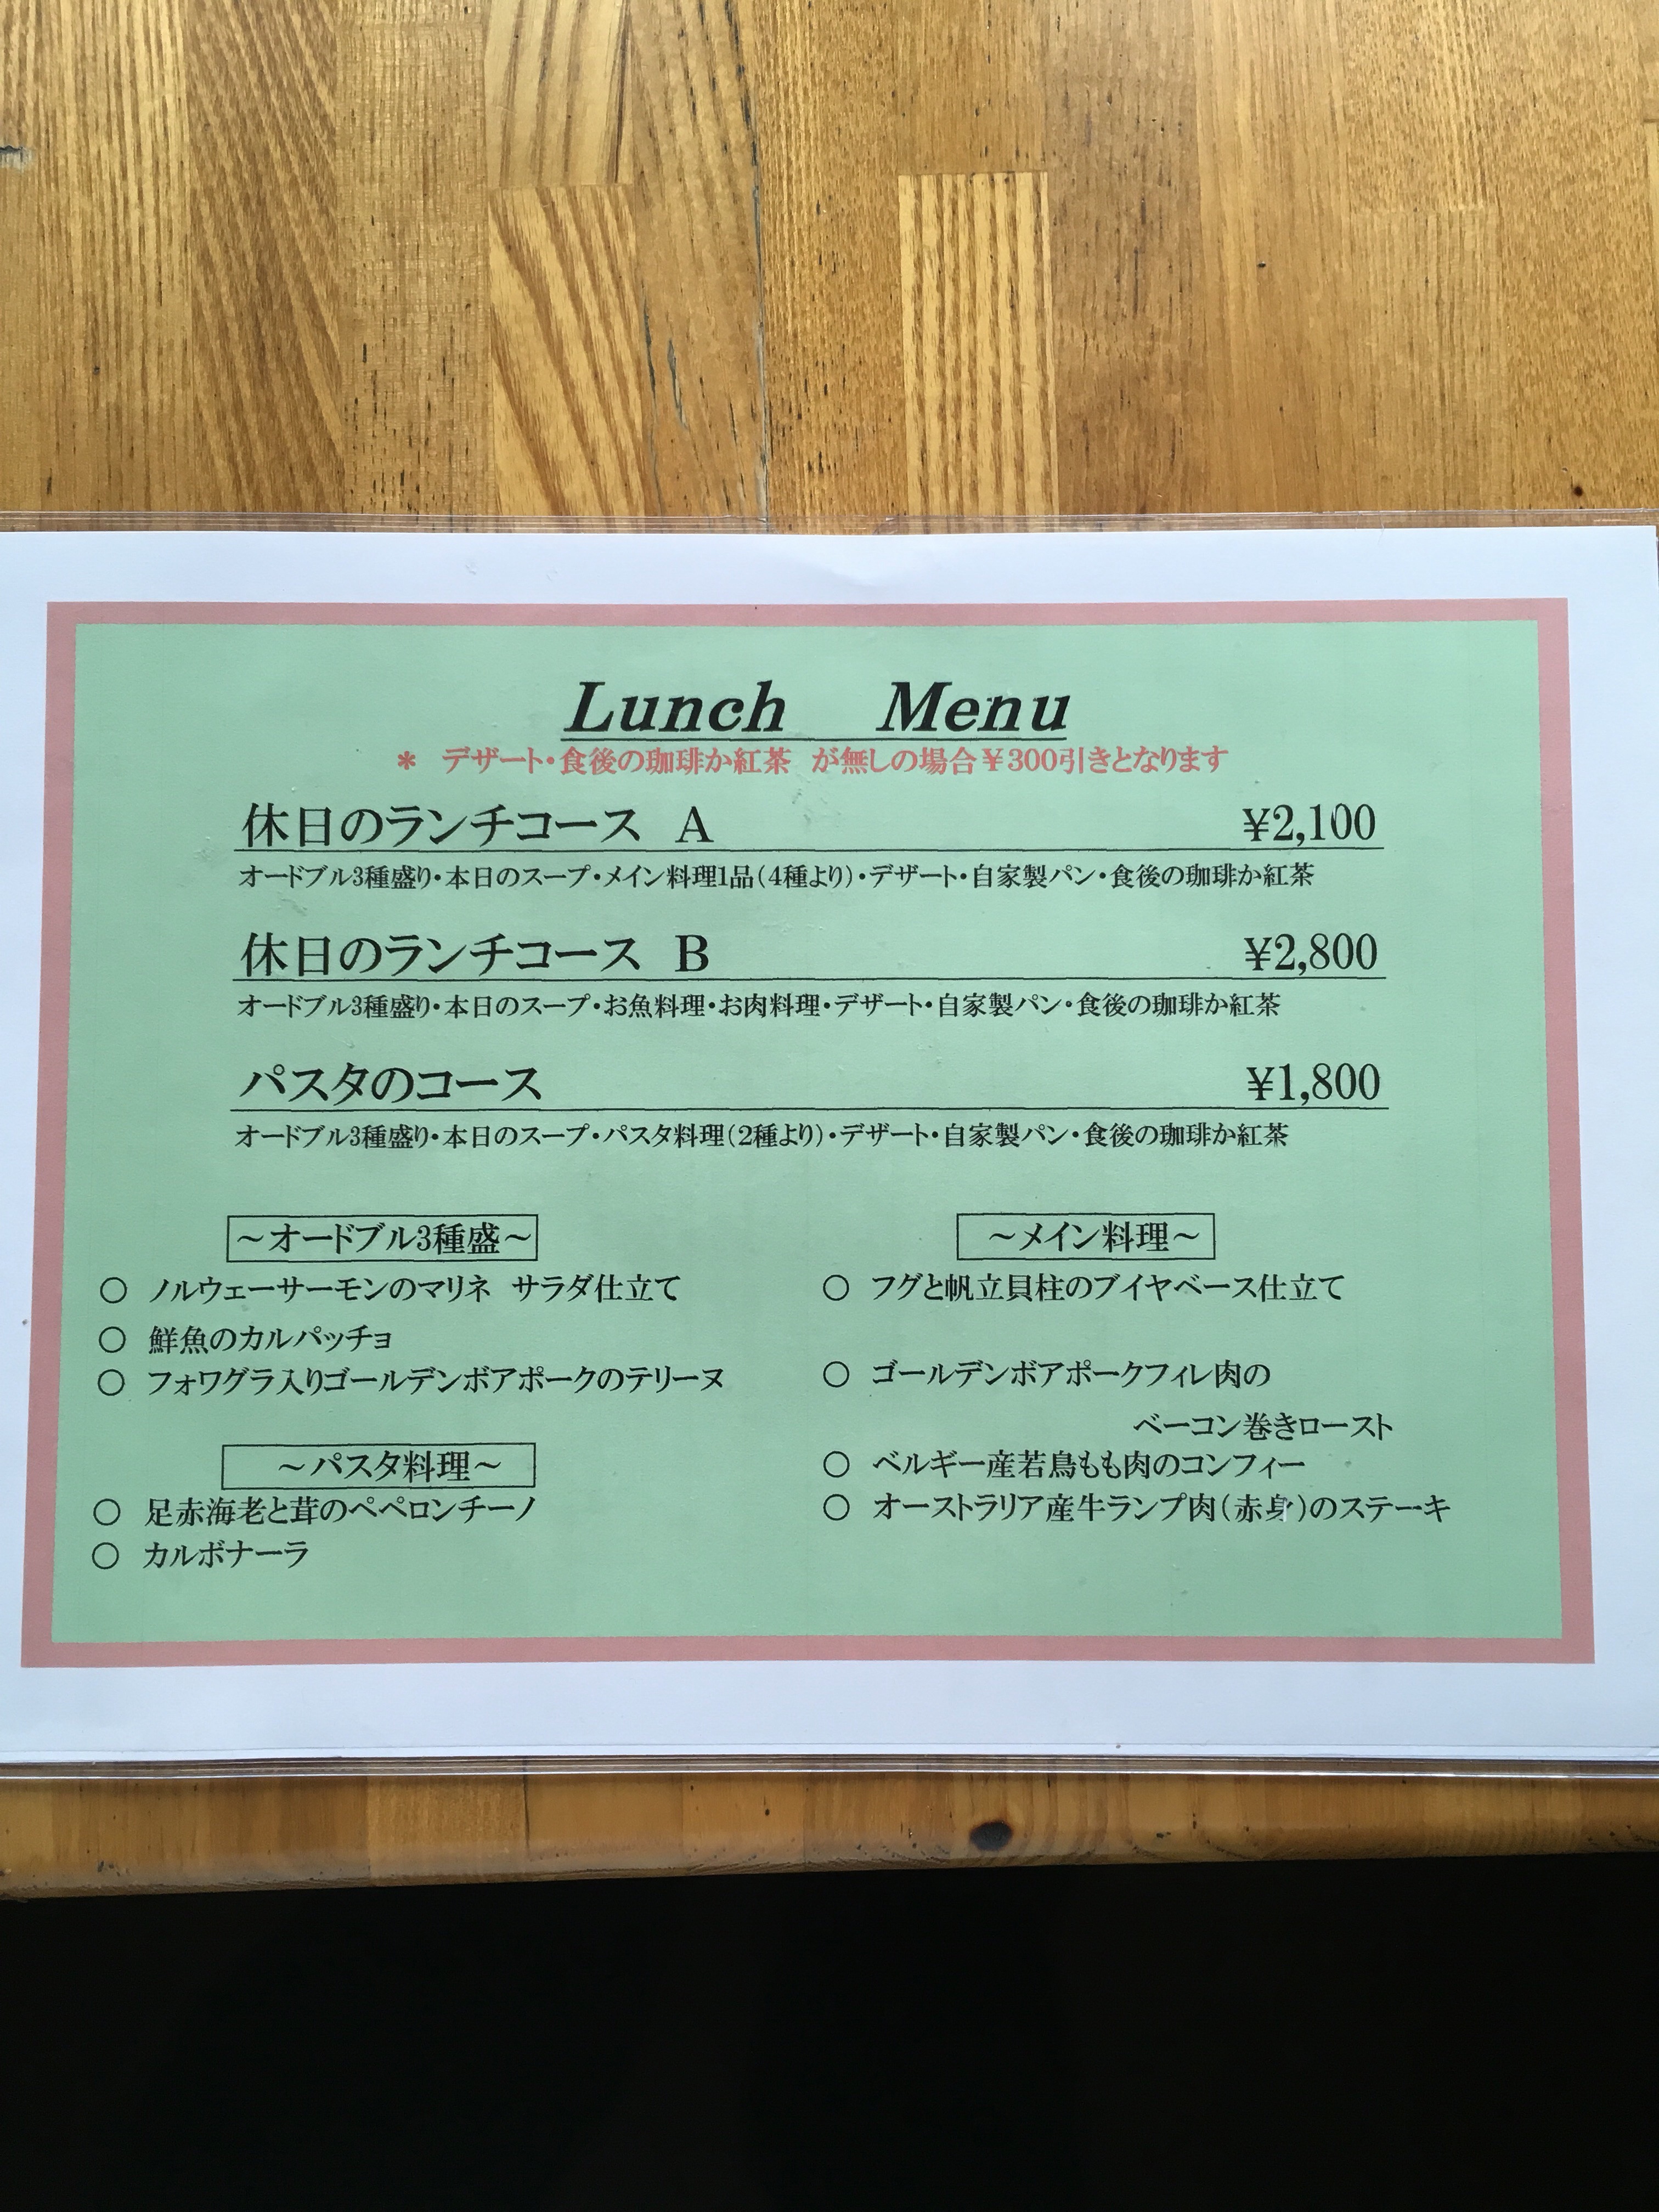 Lunch Menu
* デザート・食後の珈琲か紅茶 が無しの場合¥300引きとなります
休日のランチコース A ¥2,100
オードブル3種盛り・本日のスープ・メイン料理1品(4種より)・デザート・自家製パン・食後の珈琲か紅茶
休日のランチコース B ¥2,800
オードブル3種盛り・本日のスープ・お魚料理・お肉料理・デザート・自家製パン・食後の珈琲か紅茶
パスタのコース ¥1,800
オードブル3種盛り・本日のスープ・パスタ料理(2種より)・デザート・自家製パン・食後の珈琲か紅茶
~オードブル3種盛~
○ ノルウェーサーモンのマリネ サラダ仕立て
○ 鮮魚のカルパッチョ
○ フォワグラ入りゴールデンボアポークのテリーヌ
~パスタ料理~
○ 足赤海老と茸のペペロンチーノ
○ カルボナーラ
~メイン料理~
○ フグと帆立貝柱のブイヤベース仕立て
○ ゴールデンボアポークフィレ肉の
ベーコン巻きロースト
○ ベルギー産若鳥もも肉のコンフィー
○ オーストラリア産牛ランプ肉(赤身)のステーキ